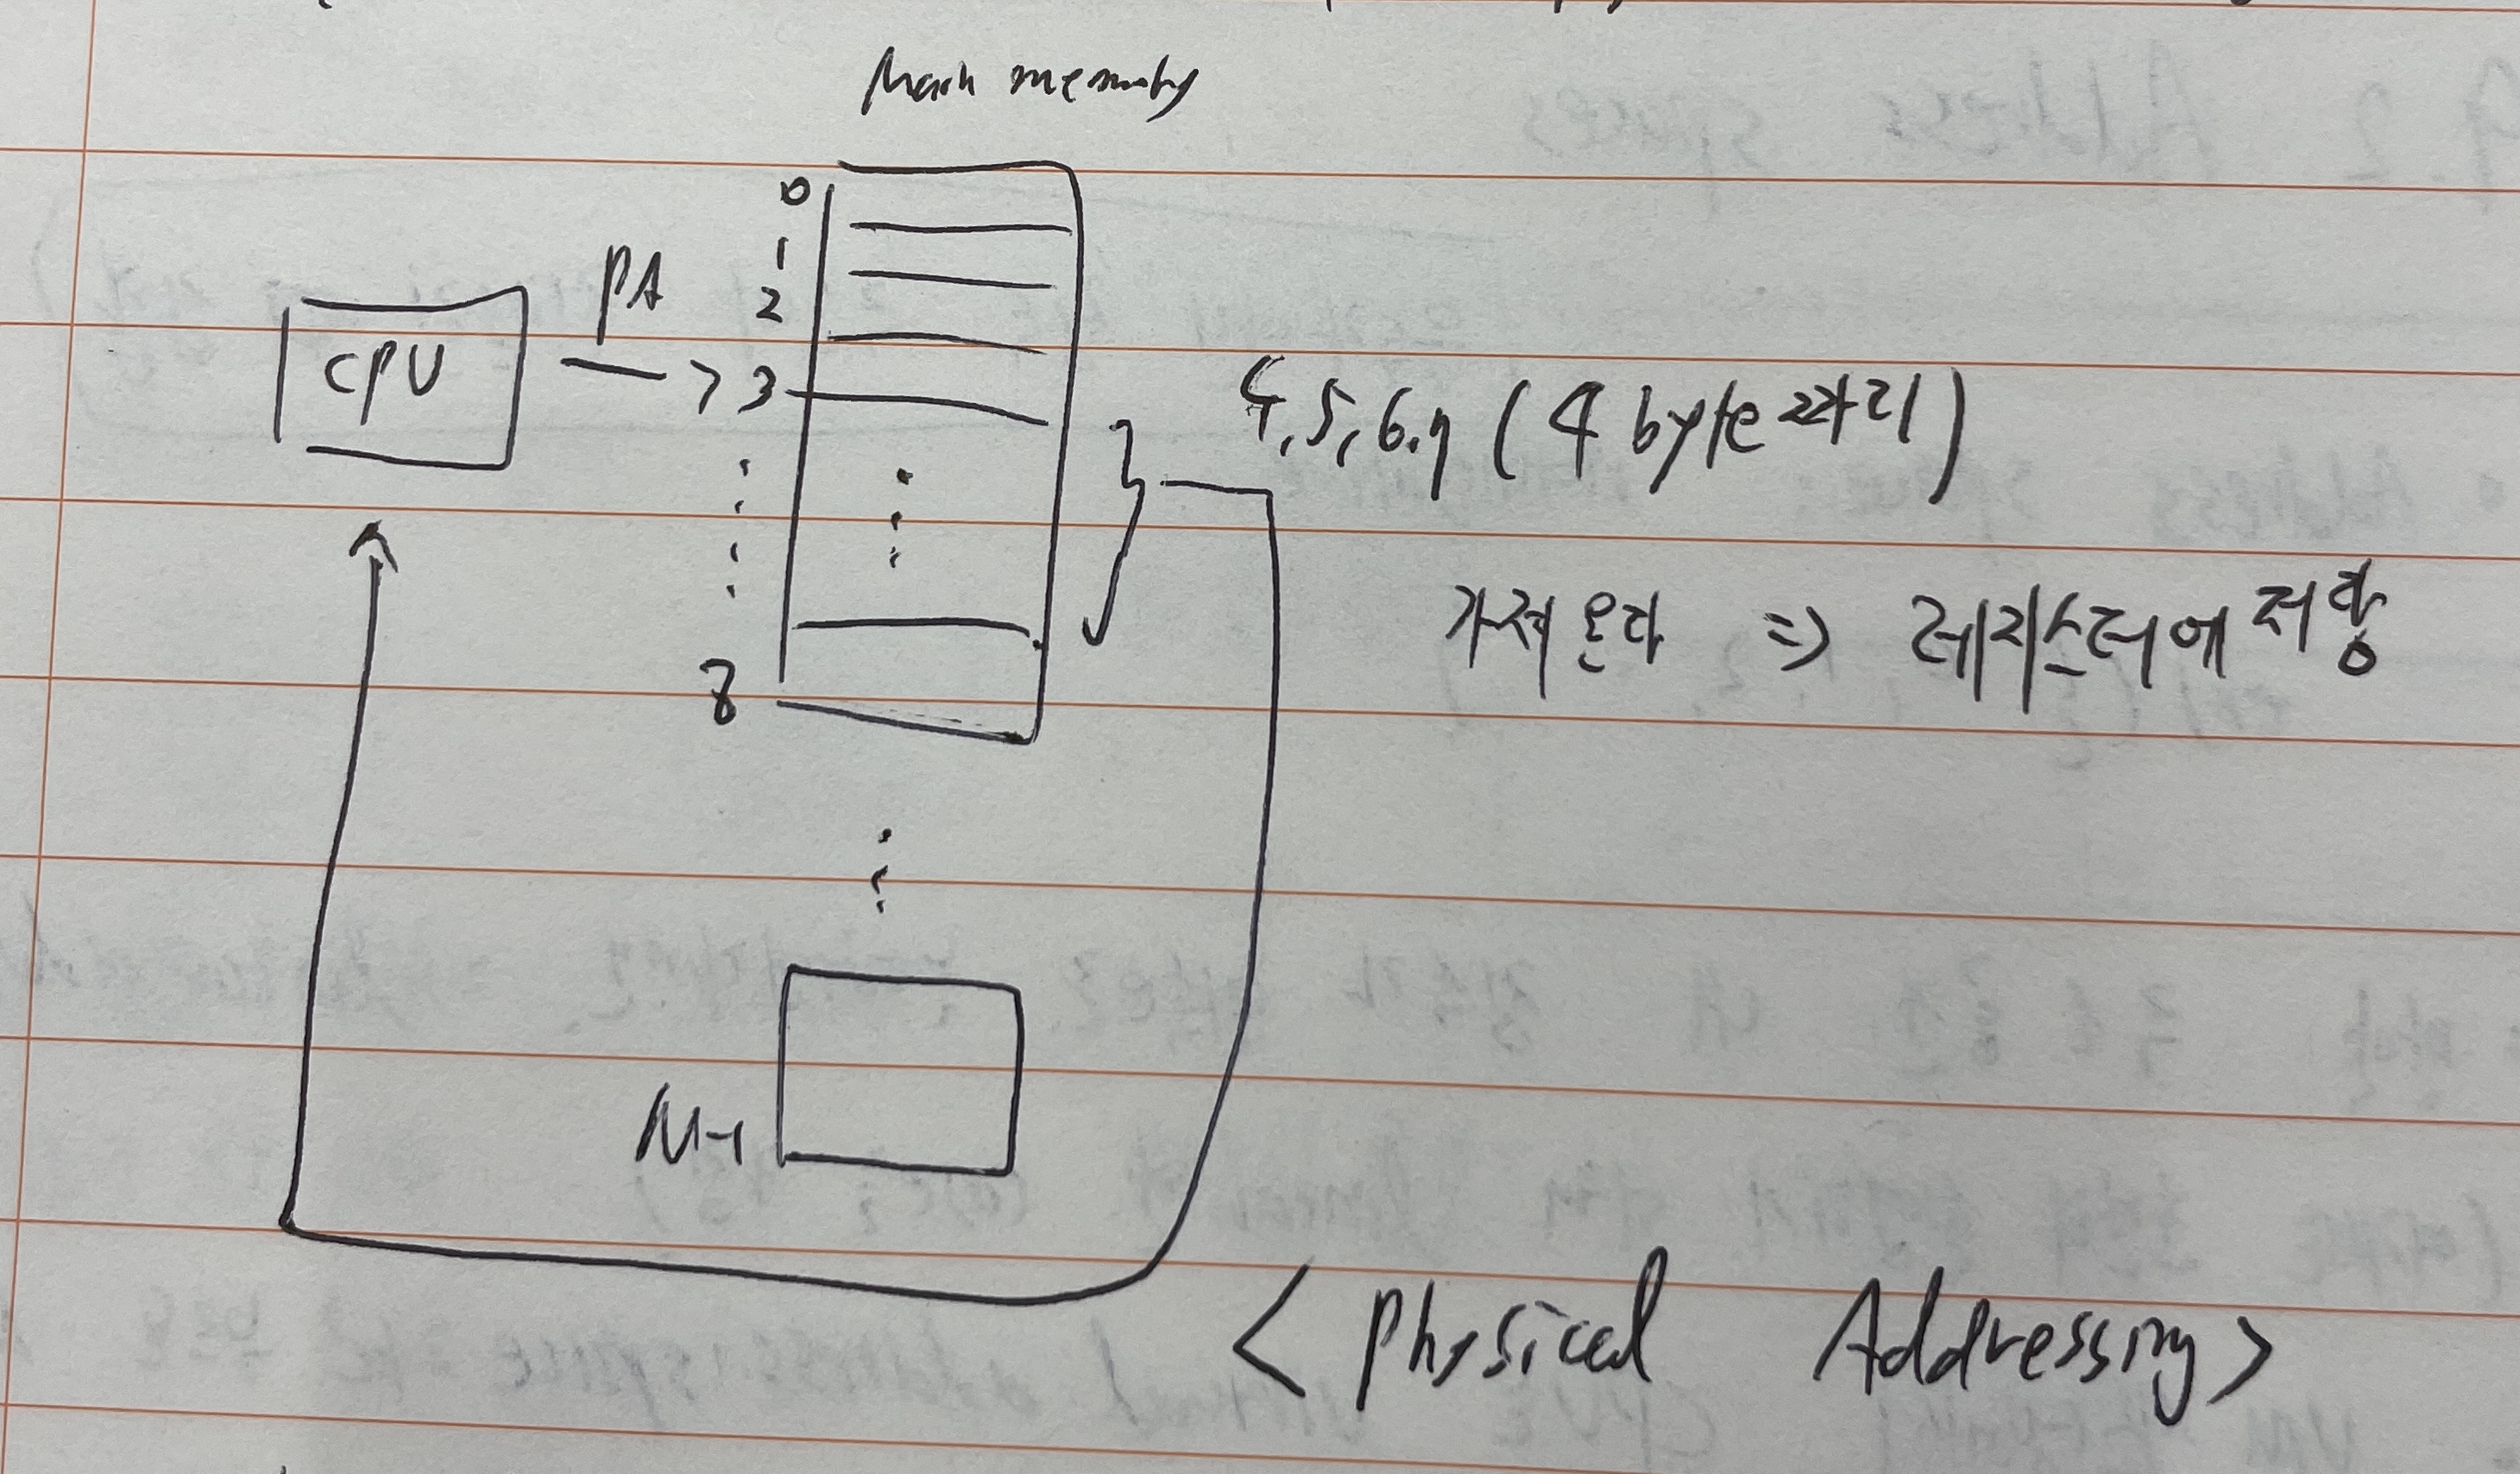 Main memory
0
1
2
PA
CPU
3
4,5,6,7 (4 byte 짜리)
가져온다 => 레지스터에 저장
8
M-1
<Physical Addressing>